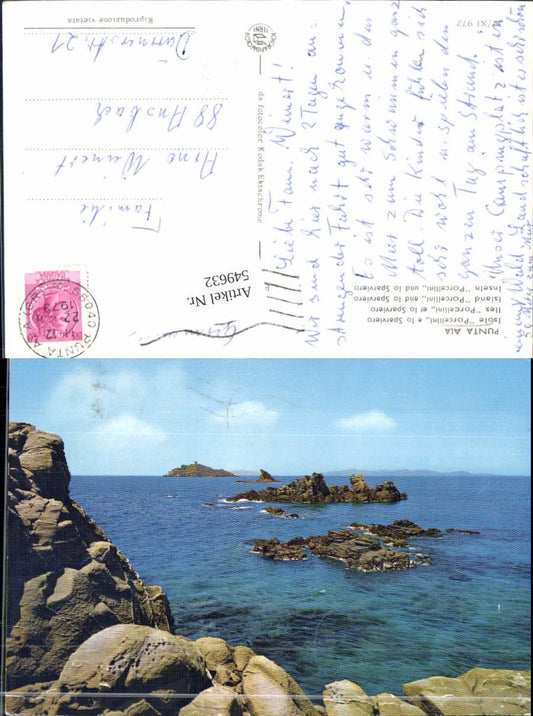 PUNTA ALA
Isole "Porcellini„ e lo Sparviero
Iles "Porcellini„ et lo Sparviero
Island "Porcellini„ and lo Sparviero
Inseln "Porcellini„ und lo Sparviero
Liebe Fam. Weinert!
Wir sind hier nach 2 Tagen an-
strengender Fahrt gut angekommen.
Es ist sehr warm u. das
Meer zum Schwimmen ganz
toll. Die Kinder fühlen sich
sehr wohl u. spielen den
ganzen Tag am Strand.
Unser Campingplatz ist in
Wald. Landschaftlich ist es sehr schön
Artikel Nr.
549632
da fotocolor Kodak Ektachrome
Riproduzione vietata
XI 972
58040 PUNTA ALA (GR)
1973
Familie
Arno Weinert
88 Ansbach
21